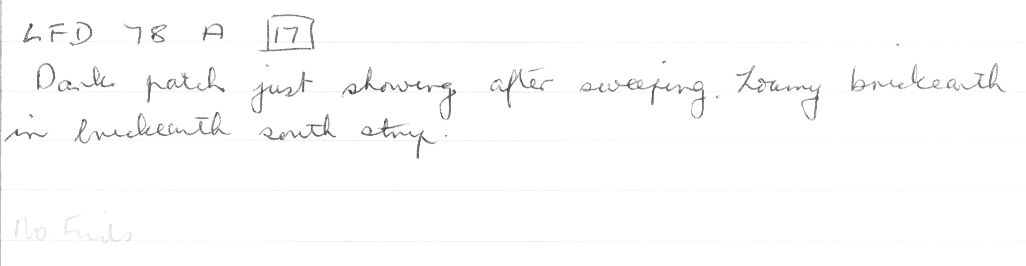 LFD 78 A 17
Dark patch just showing after sweeping. Loamy brickearth
in brickearth south strip.
No Finds